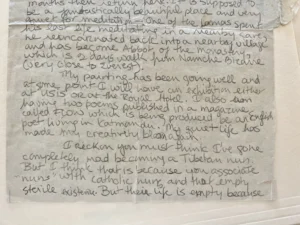 months then return here. It is supposed to
be a fantastically beautiful place and very
quiet for meditation. One of the lamas spent
his last life meditating in a nearby cave
he reincarnated back into a nearby village
and has become Abbot of the monastery
which is 2 days walk from Namche Bazaar
(very close to Everest).
My painting has been going well and
at some point I will have an exhibition either
at USIS or the Royal Hotel. I also am
having two poems published in a magazine
called FLOW which is being produced by an English
poet living in Katmandu. My quiet life has
made my creativity blossom.
I reckon you must think I've gone
completely mad becoming a Tibetan nun.
But I think that is because you associate
"nuns" with catholic nuns and that empty
sterile existence. But their life is empty because